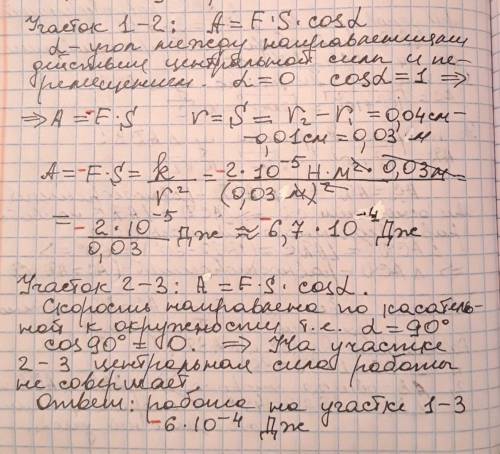 Участок 1-2: A = F·S·cosα
α - угол между направлениями
действия центральной силы и пе-
ремещением. α = 0 cosα = 1 ⇒
⇒ A = -F·S r = S = r₂ - r₁ = 0,04см -
- 0,01см = 0,03 м
A = -F·S = k/r² = -2·10⁻⁵ Н·м²·0,03м/(0,03 м)² =
= -2·10⁻⁵/0,03 Дж ≈ -6,7·10⁻⁴ Дж
Участок 2-3: A = F·S·cosα.
Скорость направлена по касатель-
ной к окружности т.е. α = 90°
cos90° = 0. ⇒ На участке
2-3 центральная сила работы
не совершает.
Ответ: работа на участке 1-3
-6·10⁻⁴ Дж